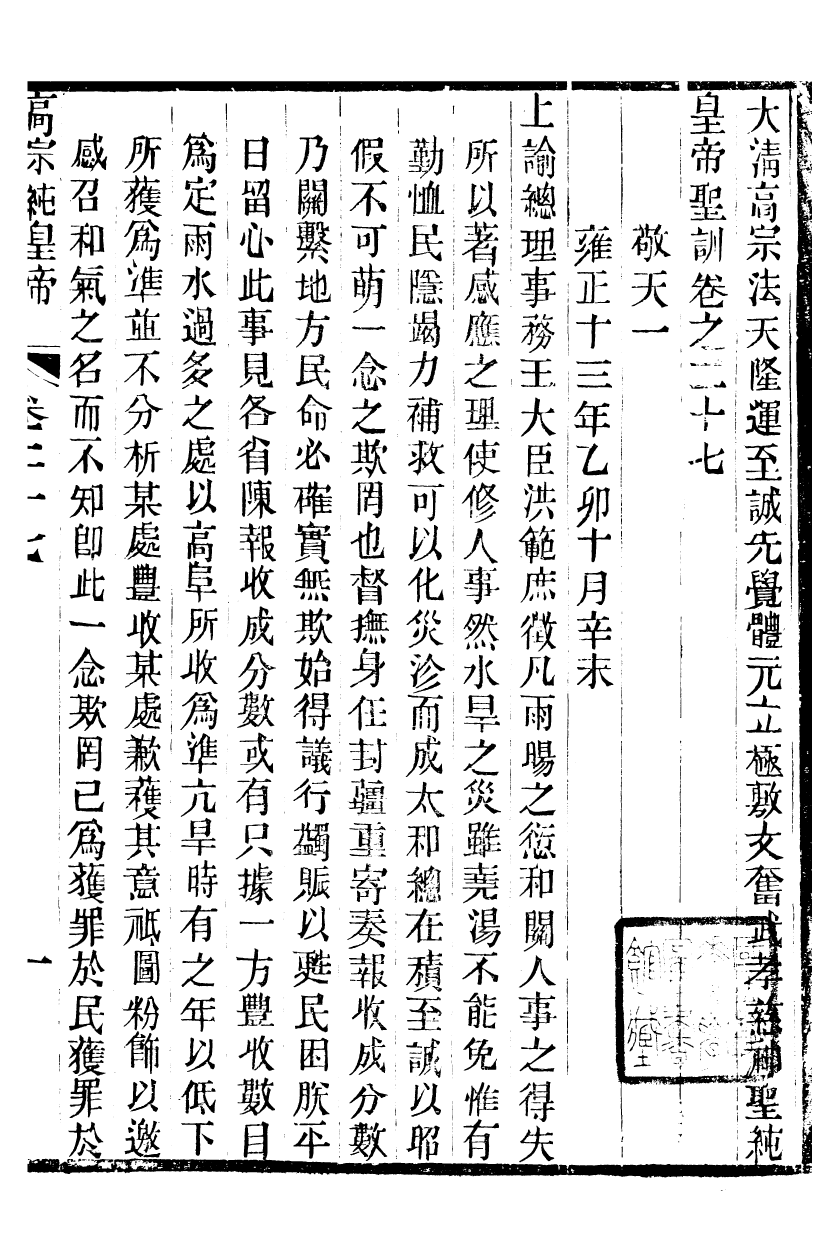 大淸高宗法天隆運至誠先覺體元立極敷文奮武孝慈神聖純
皇帝聖訓卷之二十七
敬天一
雍正十三年乙卯十月辛未
上諭總理事務王大臣洪範庶徵凡雨暘之愆和關人事之得失
所以著感應之理使修人事然水旱之災雖堯湯不能免惟有
勤恤民隱竭力補救可以化災沴而成太和總在積至誠以昭
假不可萌一念之欺罔也督撫身任封疆重寄奏報收成分數
乃關繫地方民命必確實無欺始得議行蠲賑以甦民困朕平
日留心此事見各省陳報收成分數或有只據一方豐收數目
爲定雨水過多之處以高阜所收爲準亢旱時有之年以低下
所獲爲準並不分析某處豐收某處歉穫其意祇圖粉飾以邀
感召和氣之名而不知卽此一念欺罔已爲獲罪於民獲罪於
高宗純皇帝 卷二十七 一